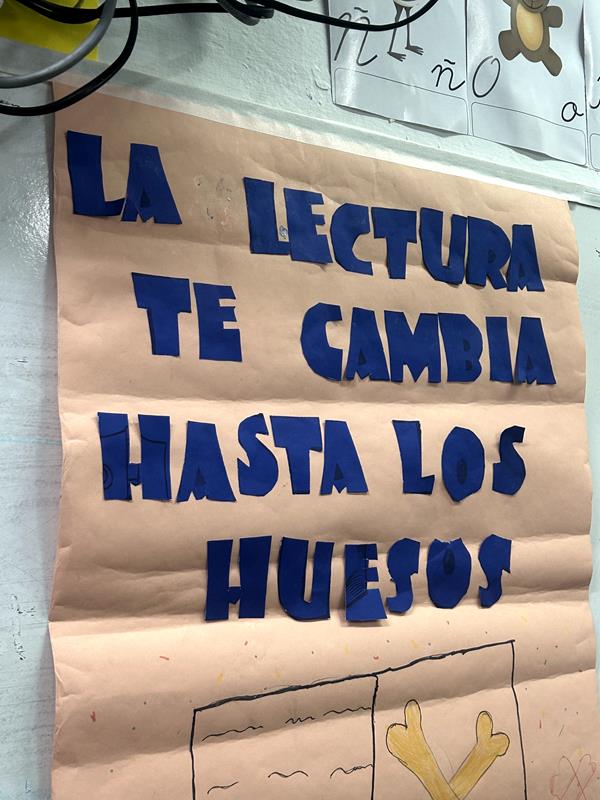 ñ ñ O o
LA LECTURA
TE CAMBIA
HASTA LOS
HUESOS